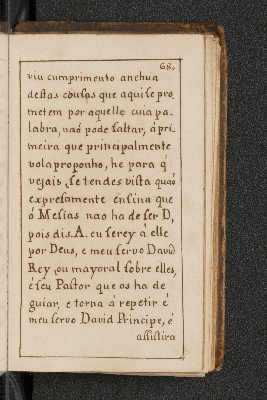 68.
viu cumprimento anchua
destas cousas que aqui se pro
metem por aquelle cuia pa-
labra, naõ pode faltar, á pri
meira que principalmente
vola proponho, he para q̃
vejais, se tendes vista quaõ
expresamente ensina que
ó Mesias nao ha de ser D,
pois dis. A. eu serey á elle
por Deus, e meu servo David
Rey, ou mayoral sobre elles,
é seu Pastor que os ha de
guiar, e torna á repetir é
meu servo David Principe, é
assistira